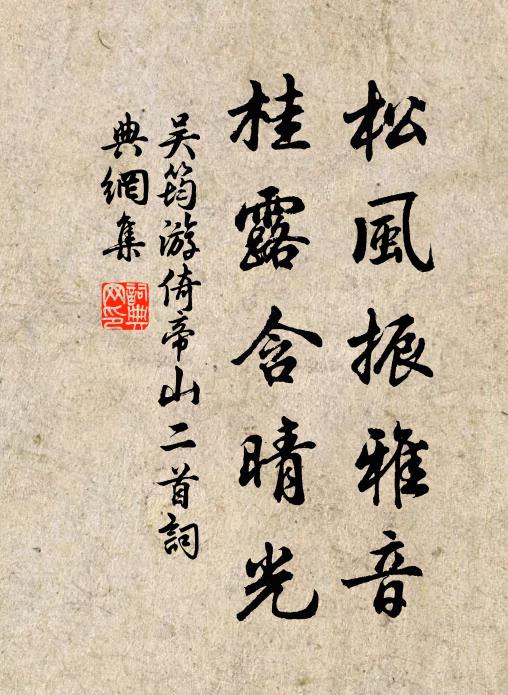 松風振雅音
桂露含晴光
吴筠游倚帝山二首詞
典網集
詞典網印